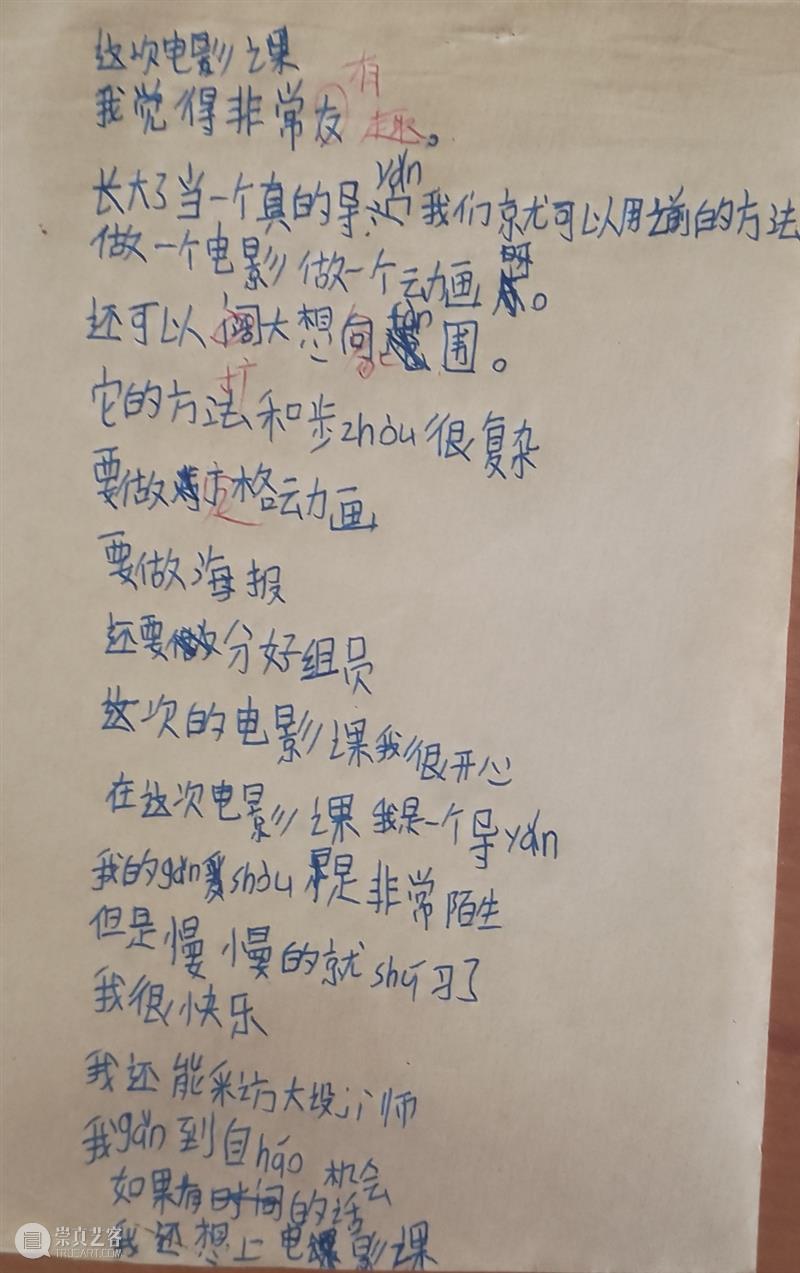 这次电影课
我觉得非常友 有趣。
长大了当一个真的导 yǎn 我们就可以用之前的方法
做一个电影 做一个动画呀。
还可以阔大想向 fàn 围。
扩
它的方法和步zhòu很复杂
要做定格动画
要做海报
还要做分好组员
这次的电影课我很开心
在这次电影课 我是一个导yǎn
我的gǎn shòu 是非常陌生
但是慢慢的就shú习了
我很快乐
我还能采访大设计师
我gǎn到自háo
如果有机会的话
我还想上电影课
崇真艺客
TRUEART.COM